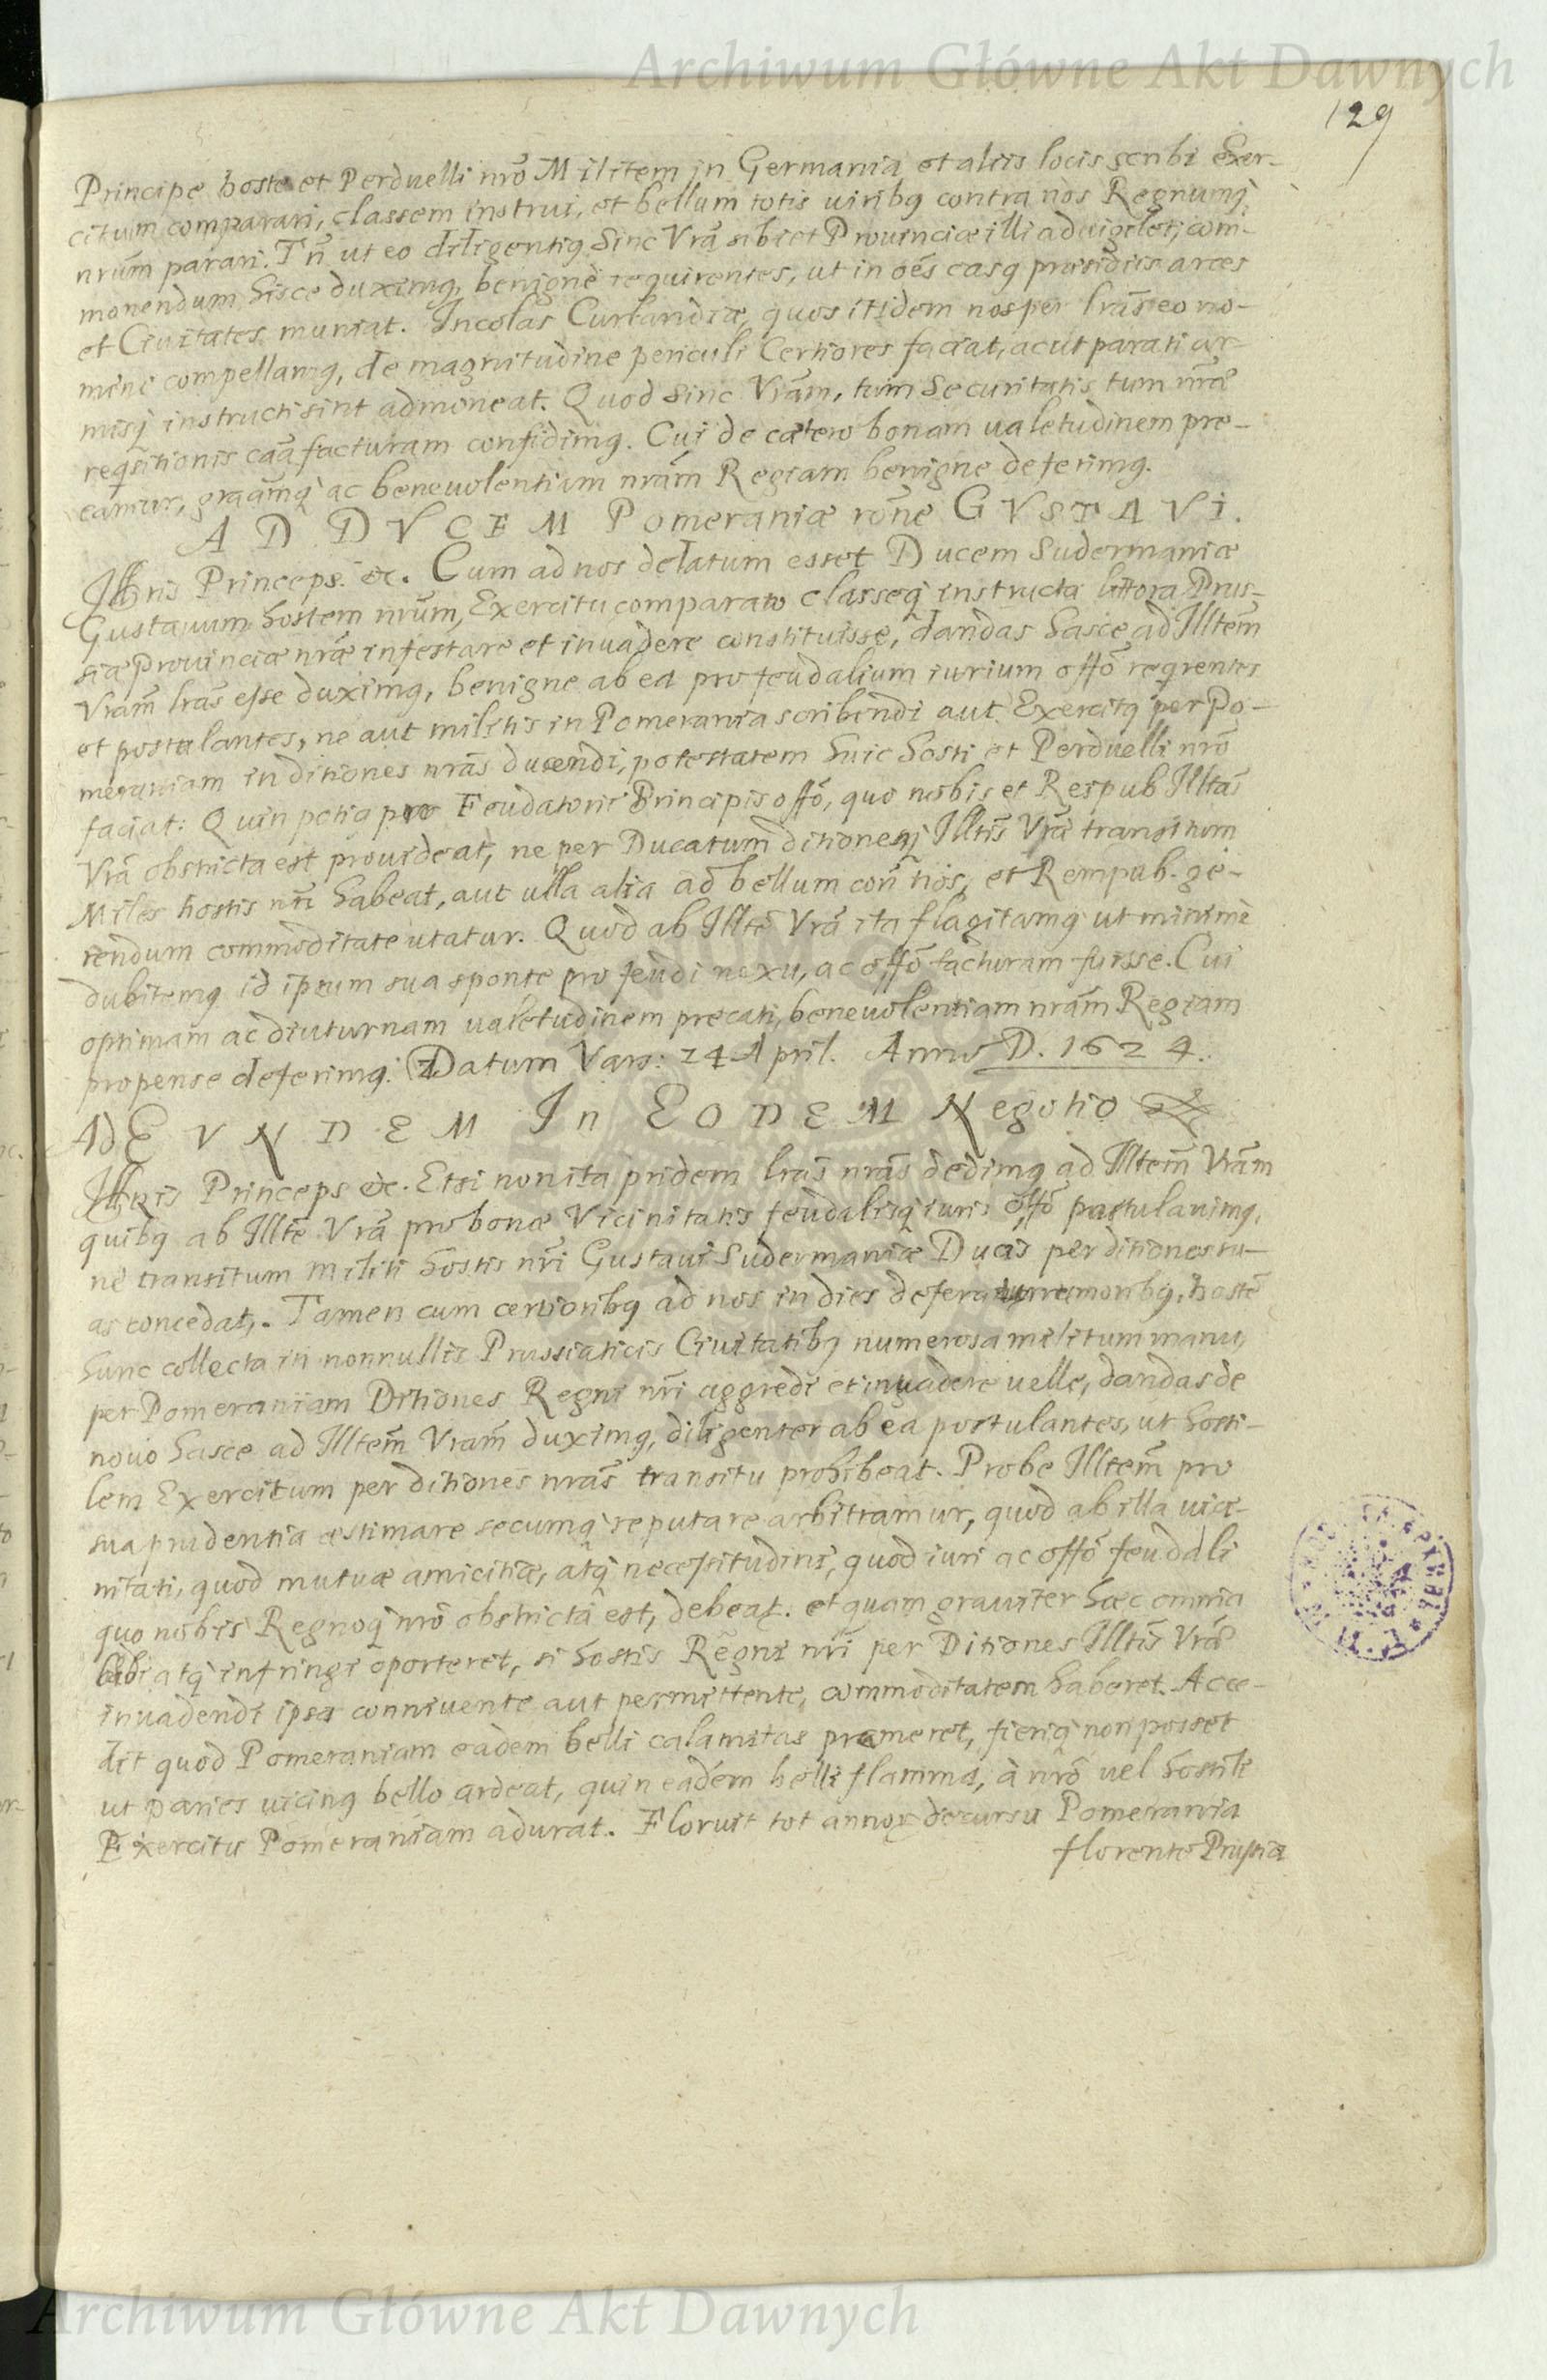 Archiwum Główne Akt Dawnych
129
Principe hoste et Perduelli nrō Militem in Germania et aliis locis scribi Exer-
citum comparari, classem instrui, et bellum totis uiribq contra nos Regnumq
nrūm parari. Tn̄ ut eo diligentiq Sinc Vrā sibi et Prouinciæ illi aduigilet, com-
monendum hisce duximq, benigne requirentes, ut in oēs casq præsidiis arces
et Ciuitates muniat. Incolas Curlandiæ, quos itidem nos per lrās eo no-
mine compellamq, de magnitudine periculi Certiores faciat, ac ut parati ar-
misq instructi sint admoneat. Quod Sinc Vrām, tum Securitatis tum nrǣ
reqsitionis caā facturam confidimq. Cui de cætero bonam ualetudinem pre-
camur, graāmq ac beneuolentiam nrām Regiam benigne deferimq.
AD DVCEM Pomeraniæ rōne GVSTAVI.
Illris Princeps. &c. Cum ad nos delatum esset Ducem Sudermaniæ
Gustauum hostem nrūm, Exercitu comparato classeq instructa littora Prus-
siæ Prouinciæ nrǣ infestare et inuadere constituisse, dandas hasce ad Illtem̄
Vrām lrās esse duximq, benigne ab ea pro feudalium iurium offō reqrentes
et postulantes, ne aut militis in Pomerania scribendi aut Exercitq per Po-
meraniam in ditiones nrās ducendi, potestatem huic hosti et Perduelli nrō
faciat: Quin potiq pro Feudatorii Principis offō, quo nobis et Reipub Illtās
Vrā obstricta est prouideat, ne per Ducatum ditionesq Illtis Vrǣ transitum
Miles hostis nrī habeat, aut ulla alia ad bellum con̄ nos, et Rempub. ge-
rendum commoditate utatur. Quod ab Illtē Vrā ita flagitamq ut minime
dubitemq id ipsum sua sponte pro feudi nexu, ac offō facturam fuisse. Cui
optimam ac diuturnam ualetudinem precati, beneuolentiam nrām Regiam
propense deferimq. Datum Vars: 14 April. Anno D. 1624.
Ad EVNDEM In EODEM Negotio
Illris Princeps &c. Etsi non ita pridem lrās nrās dedimq ad Illtem̄ Vrām
quibq ab Illte Vrā pro bonæ Vicinitatis feudalisq iuris offō postulauimq,
ne transitum militi hostis nrī Gustaui Sudermaniæ Ducis per ditiones su-
as concedat. Tamen cum certioribq ad nos in dies deferatur rumoribq, hostē
hunc collecta in nonnullis Prussiaticis Ciuitatibq numerosa militum manu,
per Pomeraniam Ditiones Regni nrī aggredi et inuadere uelle, dandas de
nouo hasce ad Illtem̄ Vrām duximq, diligenter ab ea postulantes, ut hosti-
lem Exercitum per ditiones nrās transitu prohibeat. Probe Illtem̄ pro
sua prudentia æstimare secumq reputare arbitramur, quod ab illa uici-
nitati, quod mutuæ amicitiæ, atq necessitudini, quod iuri ac offō feudali
quo nobis Regnoq nrō obstricta est, debeat. et quam grauiter hæc omnia
labi atq infringi oporteret, si hostis Regni nrī per Ditiones Illtis Vrǣ
inuadendi ipsa conniuente aut permittente, commoditatem haberet. Acce-
dit quod Pomeraniam eadem belli calamitas premeret, fieriq non posset
ut paries uicinq bello ardeat, quin eadem belli flamma, à nrō uel hostili
Exercitu Pomeraniam adurat. Floruit tot annoꝝ decursu Pomerania
florente Prussia
Archiwum Główne Akt Dawnych